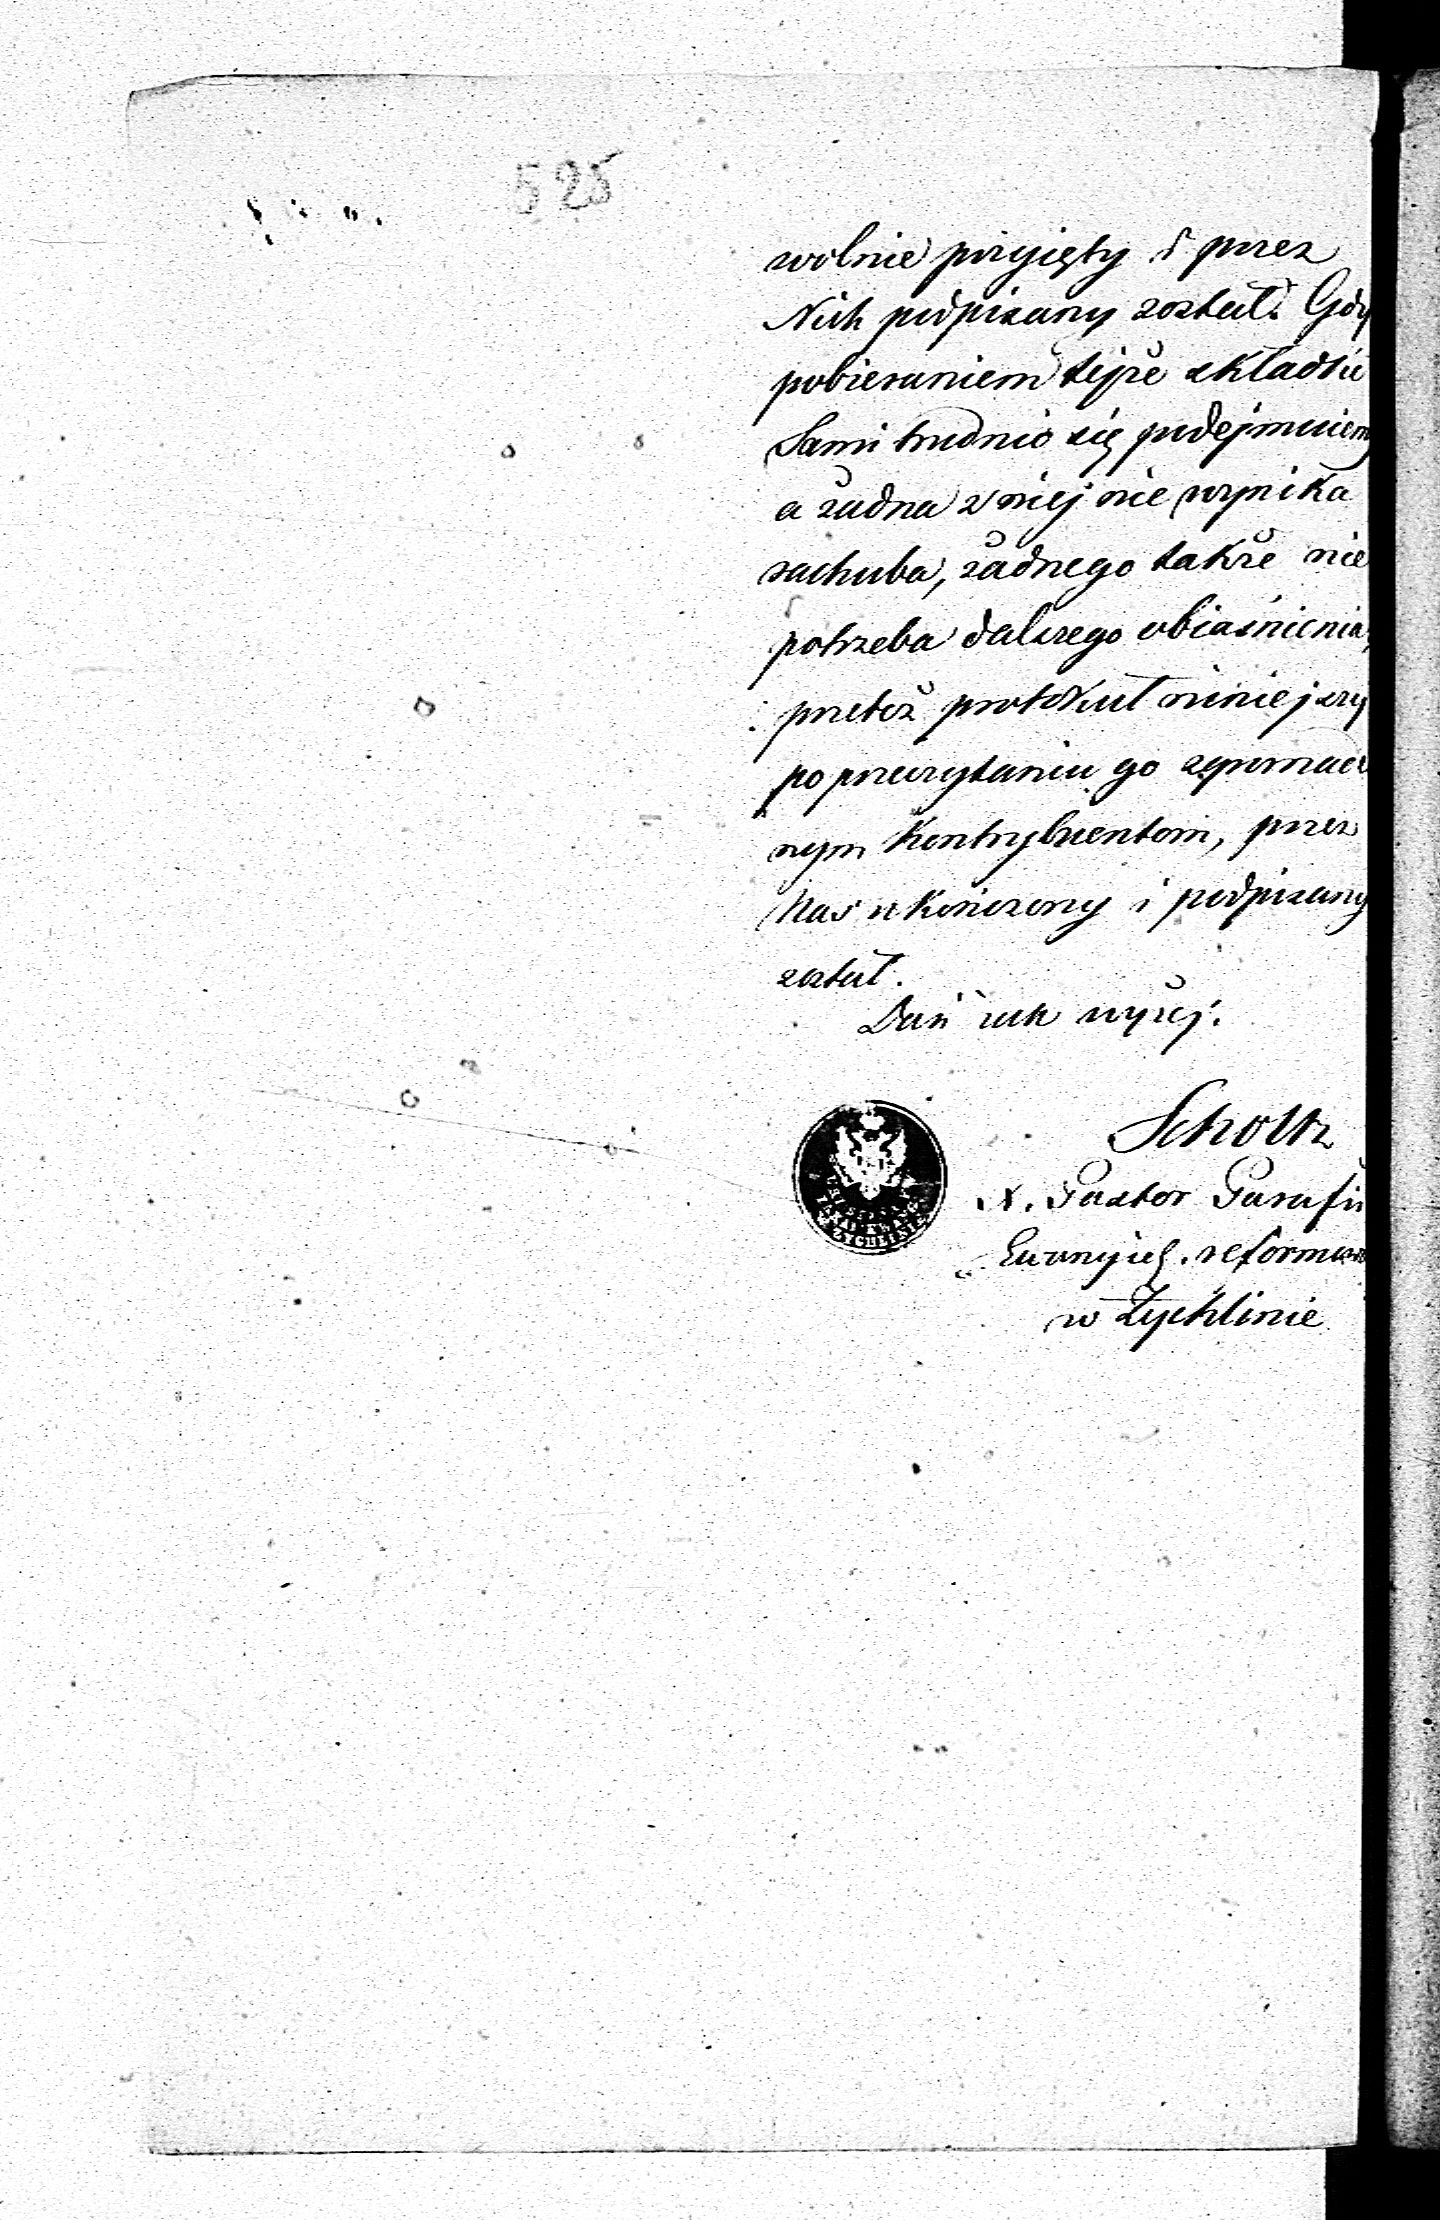 525
wolnie przyięty i przez
Nich podpisany został. Gdy
pobieraniem tejże składki
Sami trudnić się podejmuiem
a żadna z niej nie wynika
rachuba, żadnego także nie
potrzeba dalszego obiaśnienia,
przetoż protokuł niniejszy
po przeczytaniu go zgromadz
nym Kontrybuentom, przez
Nas ukończony i podpisany
został.
Dań rok wyżej.
Scholtz
X. Pastor Parafii
Ewangiel. reformow
w Żychlinie
ŻYCHLINIE